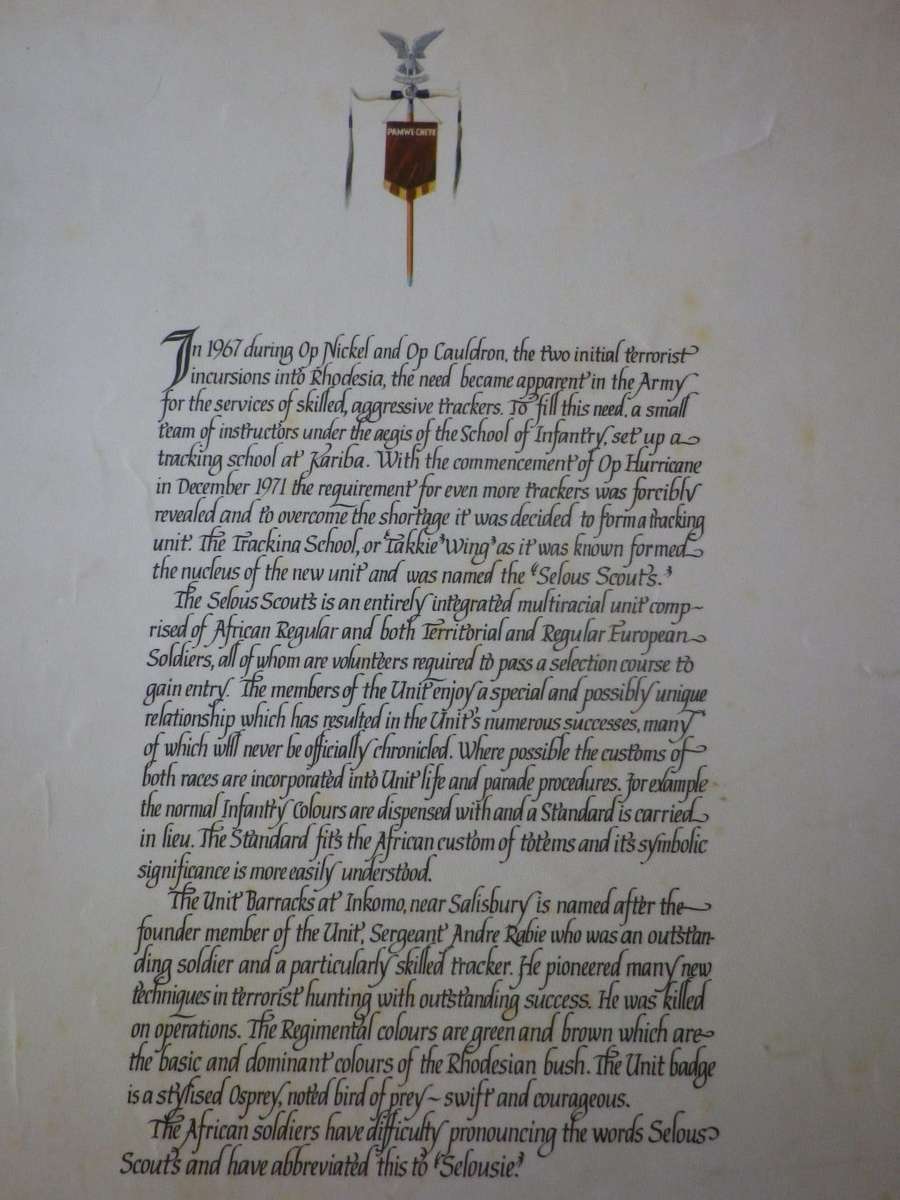 PAMWE CHETE
In 1967 during Op Nickel and Op Cauldron, the two initial terrorist
incursions into Rhodesia, the need became apparent in the Army
for the services of skilled, aggressive trackers. To fill this need, a small
team of instructors under the aegis of the School of Infantry, set up a
tracking school at Kariba. With the commencement of Op Hurricane
in December 1971 the requirement for even more trackers was forcibly
revealed and to overcome the shortage it was decided to form a tracking
unit. The Tracking School, or ‘Takkie Wing’ as it was known formed
the nucleus of the new unit and was named the “Selous Scouts.”
The Selous Scouts is an entirely integrated multiracial unit comp-
rised of African Regular and both Territorial and Regular European
Soldiers, all of whom are volunteers required to pass a selection course to
gain entry. The members of the Unit enjoy a special and possibly unique
relationship which has resulted in the Unit's numerous successes, many
of which will never be officially chronicled. Where possible the customs of
both races are incorporated into Unit life and parade procedures. For example
the normal Infantry Colours are dispensed with and a Standard is carried
in lieu. The Standard fits the African custom of totems and its symbolic
significance is more easily understood.
The Unit Barracks at Inkomo, near Salisbury is named after the
founder member of the Unit, Sergeant Andre Rabie who was an outstan-
ding soldier and a particularly skilled tracker. He pioneered many new
techniques in terrorist hunting with outstanding success. He was killed
on operations. The Regimental colours are green and brown which are
the basic and dominant colours of the Rhodesian bush. The Unit badge
is a stylised Osprey, noted bird of prey ~ swift and courageous.
The African soldiers have difficulty pronouncing the words Selous
Scouts and have abbreviated this to “Selousie.”